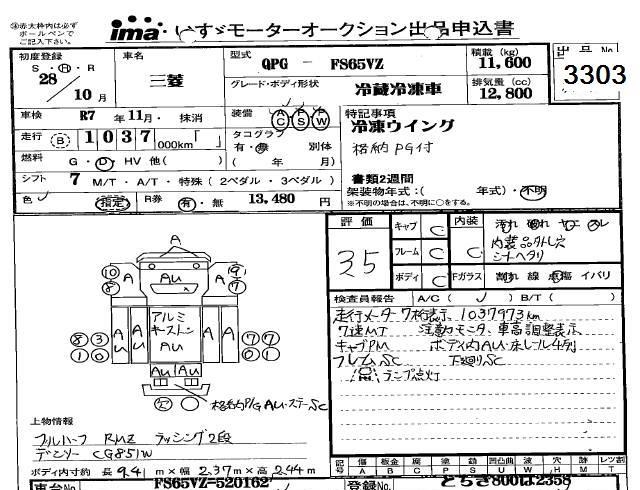 ※赤太枠内は必ず
ボールペンで
ご記入下さい。
ima いすゞモーターオークション出品申込書
初度登録 S・H・R 28年 10月
車名 三菱
型式 QPG － FS65VZ
積載 (kg) 11,600
グレード・ボディ形状 冷蔵冷凍車
排気量 (cc) 12,800
出品No 3303
車検 R7年11月・抹消
装備 AC PS PW
特記事項
冷凍ウイング
格納PG付
走行 B 1037 000km「 」
タコグラフ 有・無 別体 ( 年 月)
燃料 G・D・HV 他( )
書類2週間
架装物年式:( 年式)・不明
※不明の場合は、不明に○をする。
シフト 7 M/T・A/T・特殊 (2ペダル・3ペダル)
色 指定 R券 有・無 13,480 円
評価 35
キャブ C
フレーム C
ボディ C
内装 C
Fガラス
汚れ 破れ ヤニ スレ
内装品外し穴
シートヘタリ
割れ 線 点傷 イバリ
検査員報告 A/C( ✓ ) B/T( )
走行メーター7桁表示 1037973km
7速MT 注意モニタ、車高調整表示
キャブPM ボデス内AU・床レール4列
フレムSC 下廻りSC
ランプ点灯
A
AU
アルミ
キーストン
AU
AU AU
A A A A
格納P/G AU・ステーSC
上物情報
フルハーフ RMZ ラッシング2段
デンソー CG851W
ボディ内寸約 長9.41m×幅2.37m×高2.44m
記号 傷 板金 腐 塗 錆 凹 凸凹曲 W 穴 跡 レンズ割
A B C P S U W H M T
車台No FS65VZ-520162
登録No とちぎ800は2358